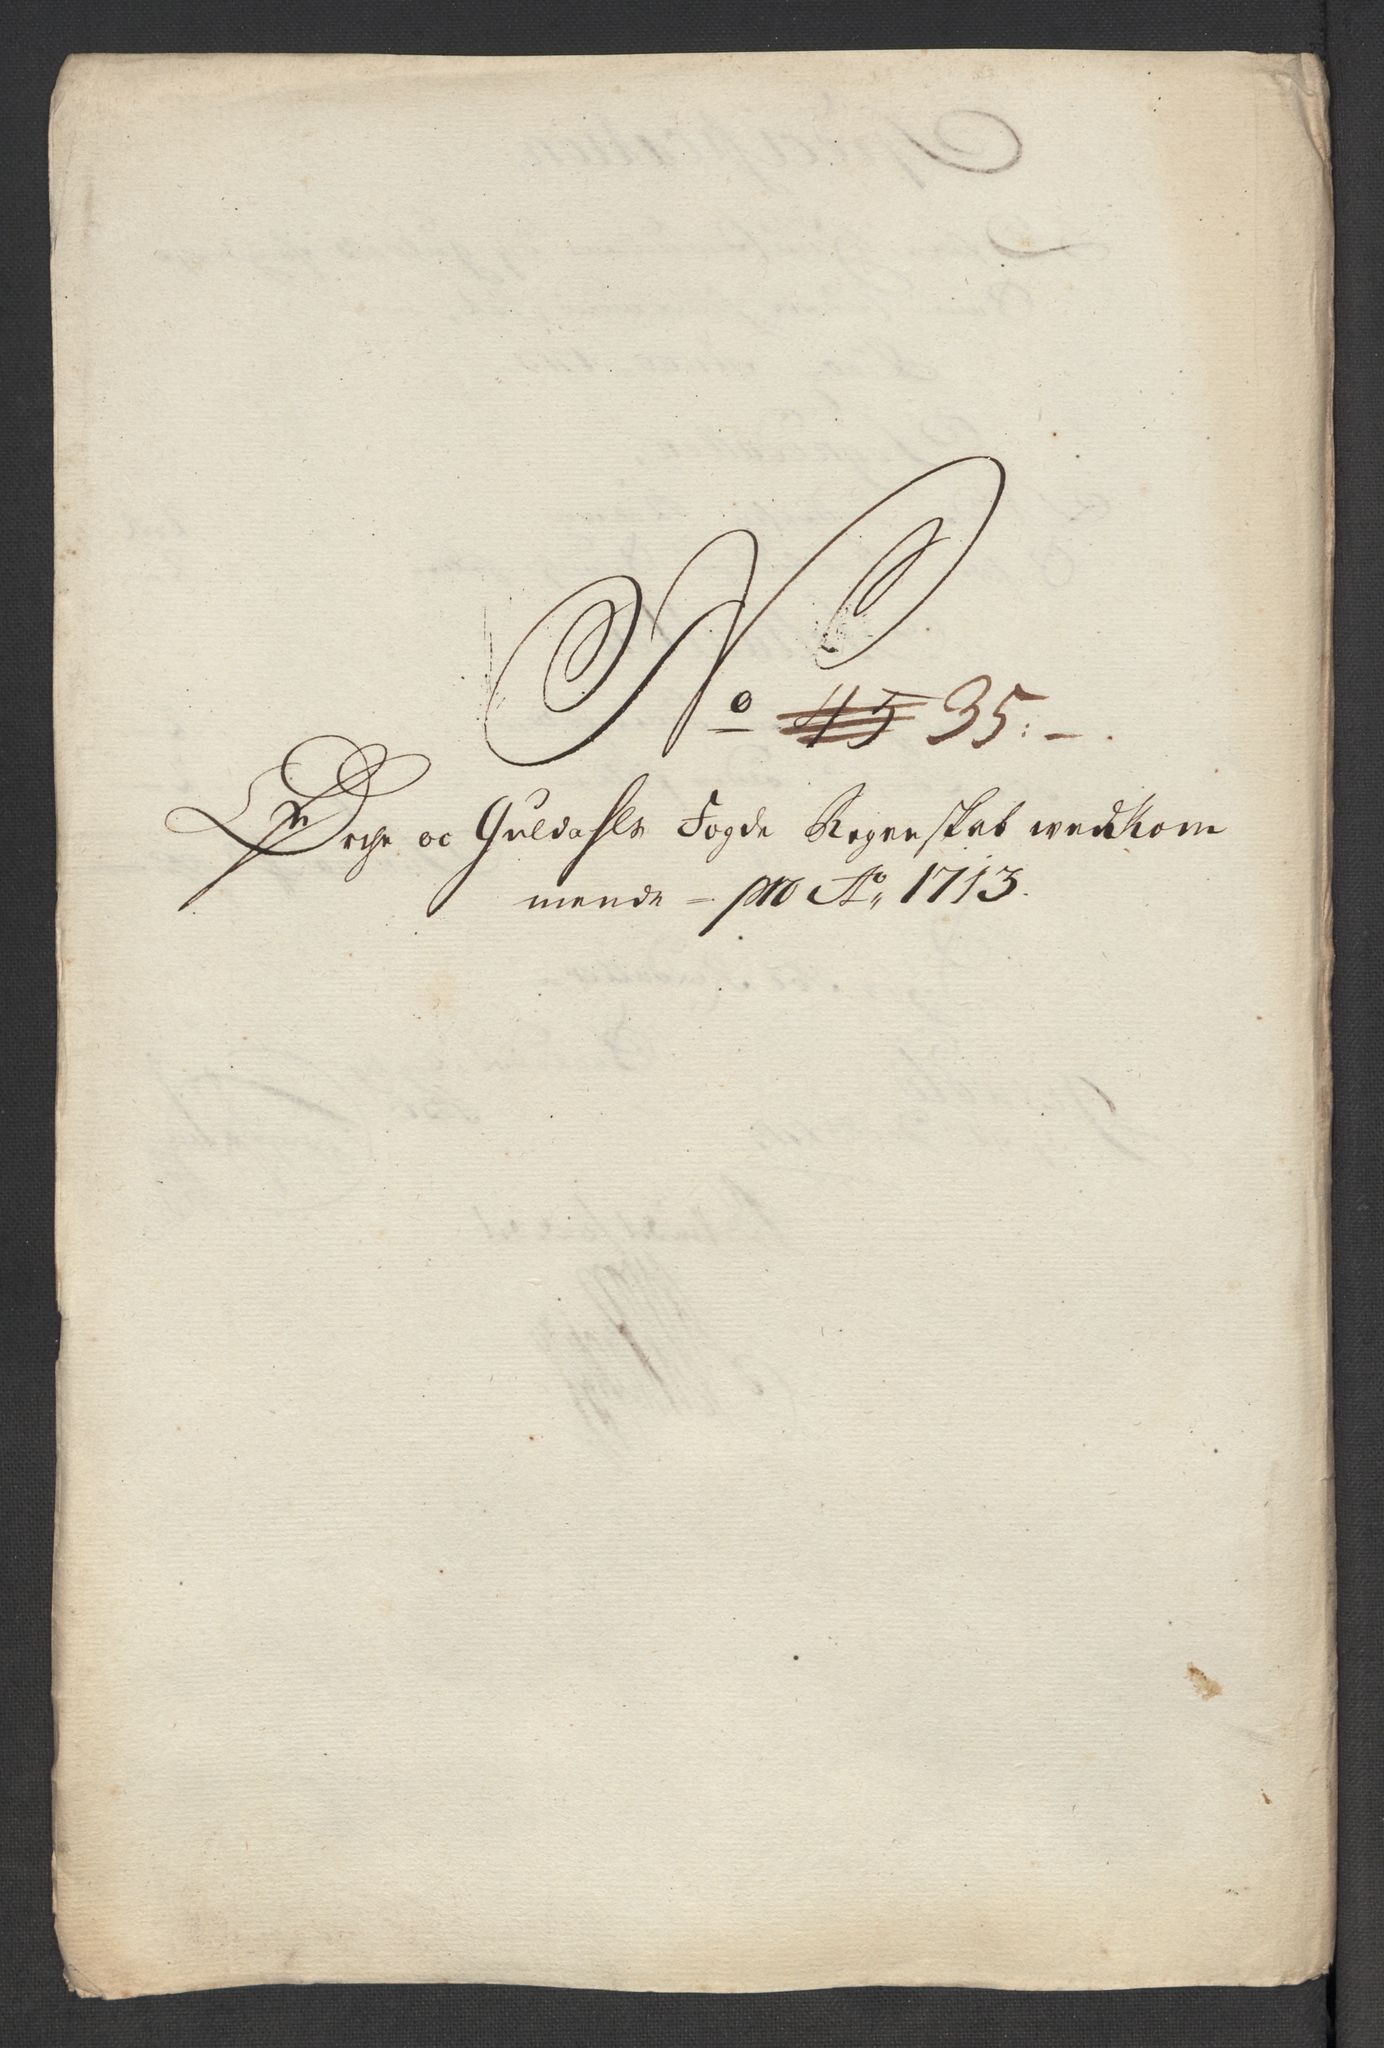 No 45 35:-.
Ørche oc Guldahls Fogde Regenskab wedkom
mende - pro Ao, 1713.